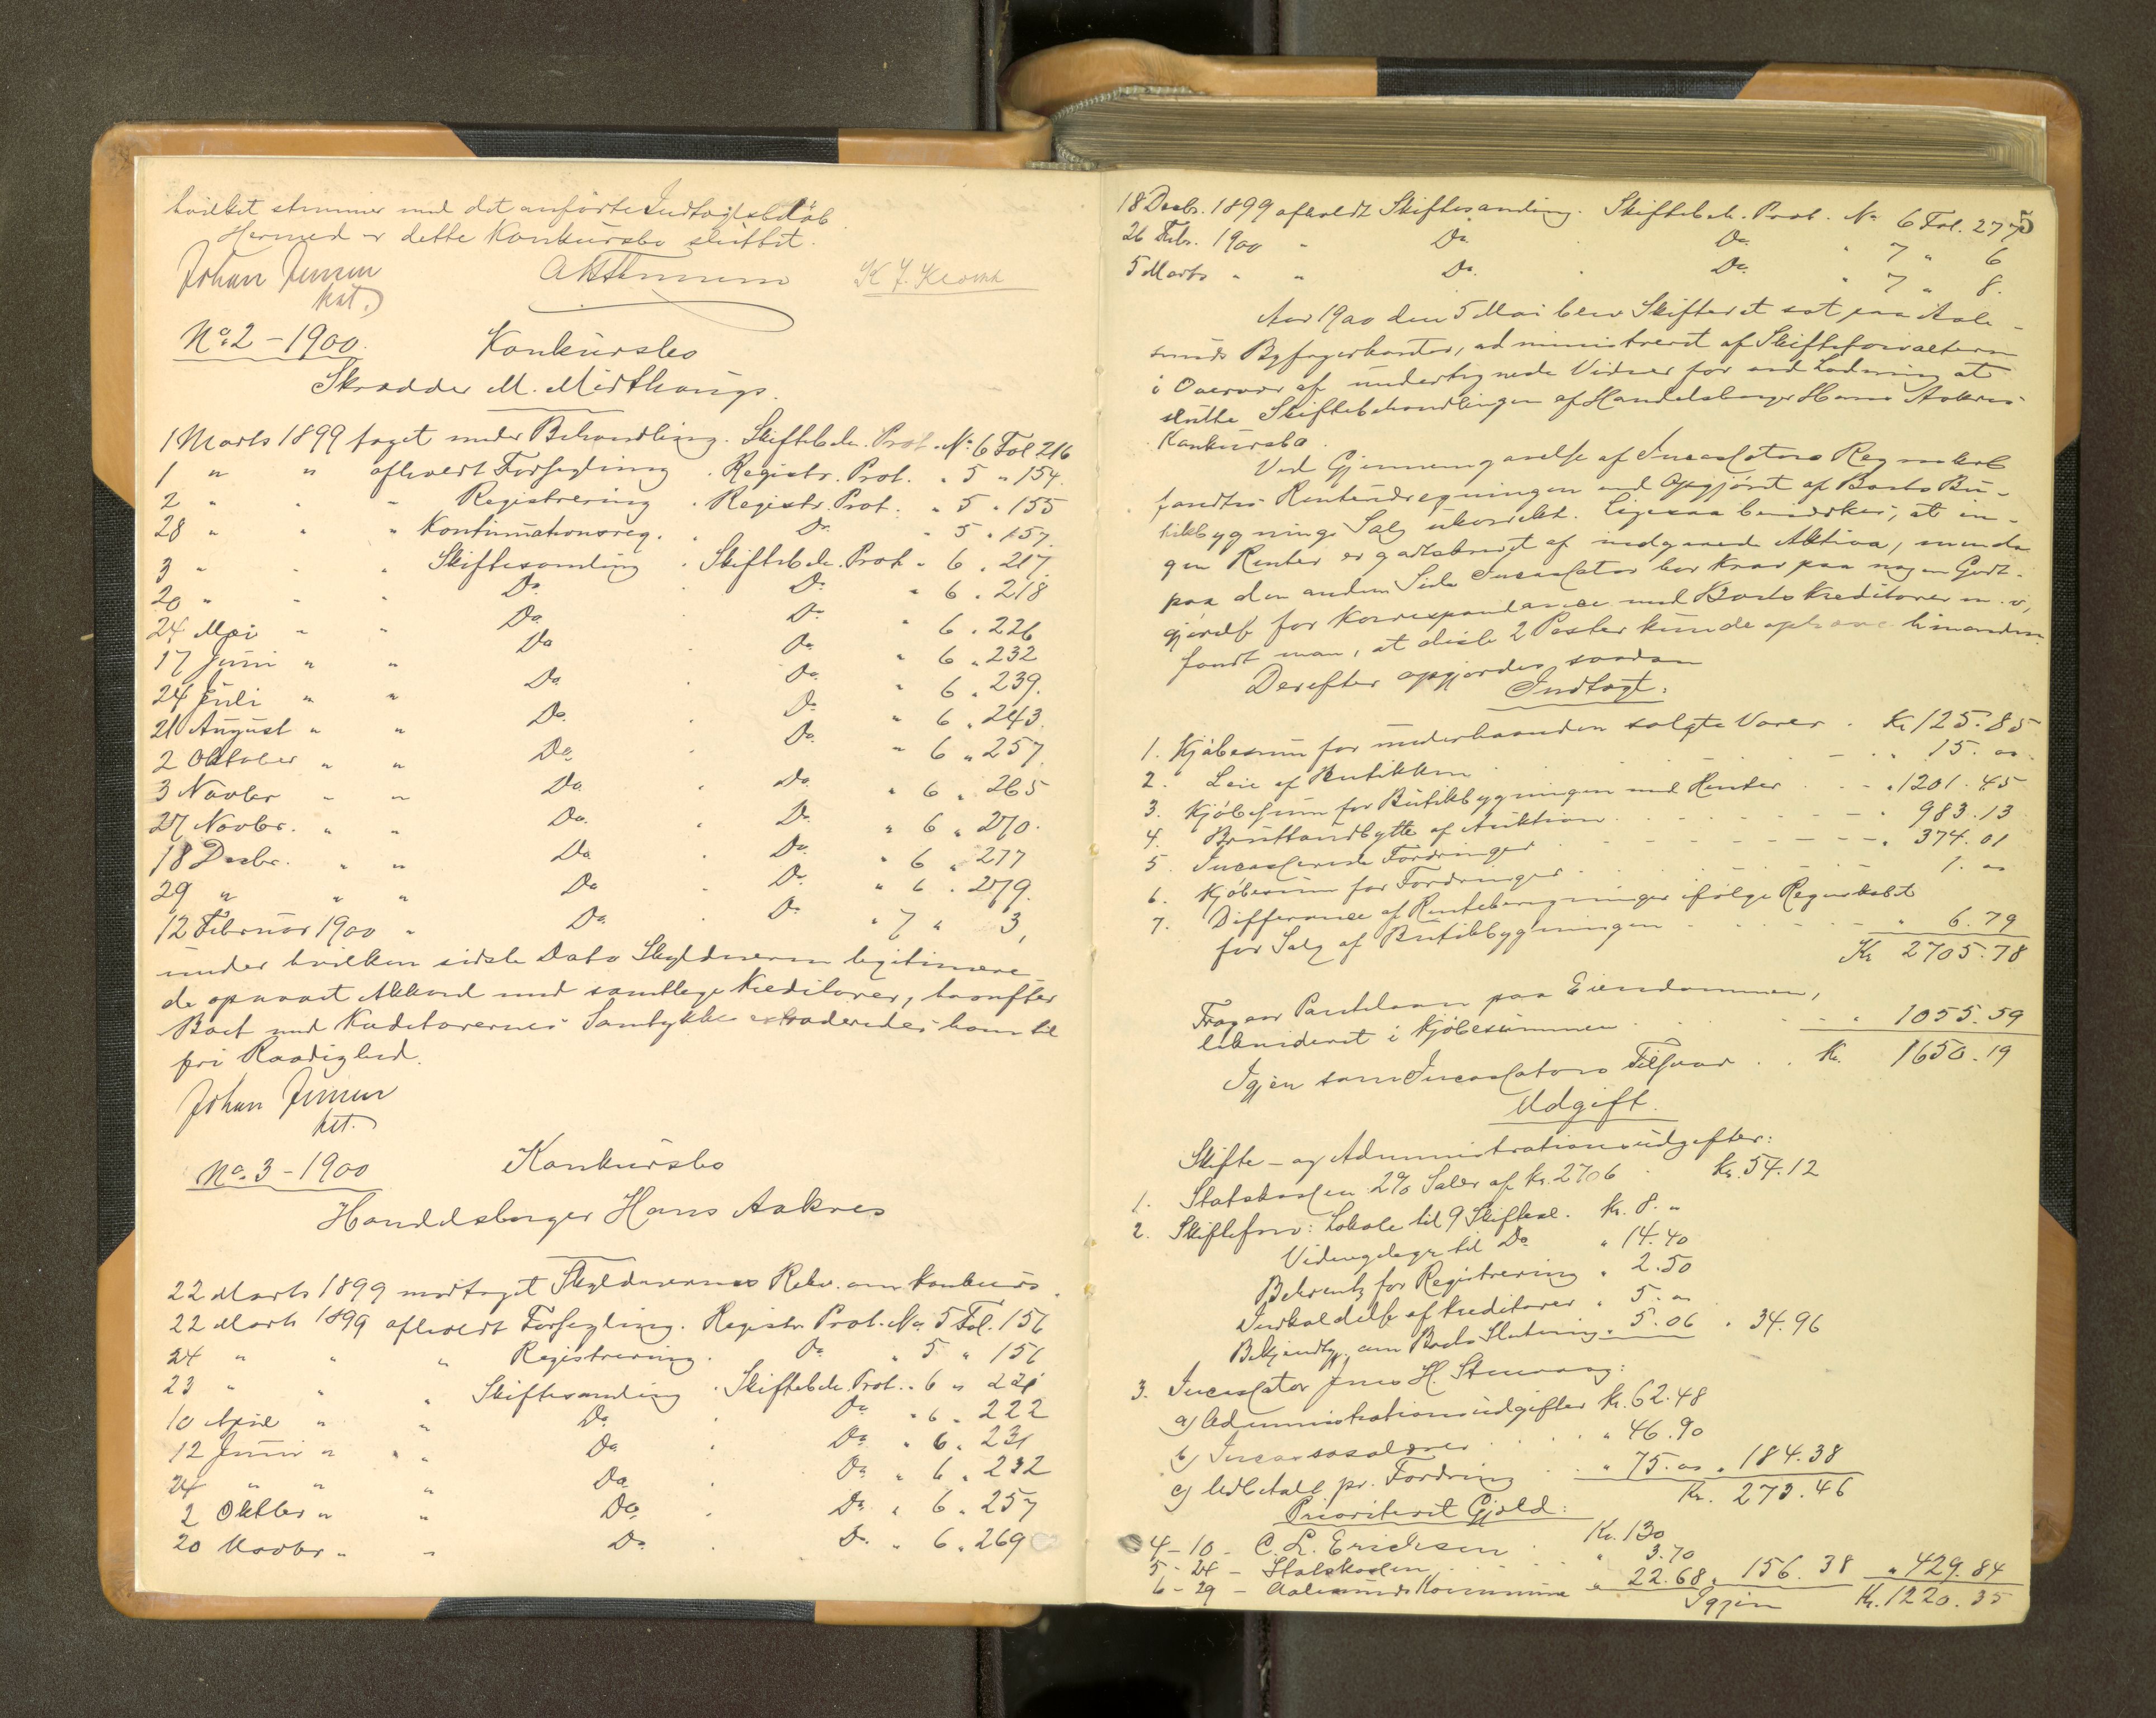 hvilket stemmer med det anførte Indtægtsbeløb
Hermed er dette Konkursbo sluttet.
Johan Jensen
kst.
No. 2 - 1900. Konkursbo
Skrædder M. Midthaugs.
1 Marts 1899 taget under Behandling. Skiftebeh. Prot. No. 6 Fol. 216
1 " " afholdt Forsegling . Registr. Prot. " 5 " 154.
2 " " " Registrering . Registr. Prot. " 5 " 155
28 " " " Kontinuationsreg. . Do. " 5 " 157.
3 " " " Skiftesamling . Skiftebeh. Prot. " 6 " 217.
20 " " " Do. . Do. " 6 " 218
24 Mai " " Do. . Do. " 6 " 226
17 Juni " " Do . Do. " 6 " 232
24 Juli " " Do. . Do. " 6 " 239.
21 August " " Do. . Do. " 6 " 243.
2 Oktober " " Do. . Do. " 6 " 257.
3 Novbr " " Do. . Do. " 6 " 265
27 Novbr. " " Do. . Do. " 6 " 270.
18 Decbr. " " Do. . Do. " 6 " 277
29 " " " Do . Do. " 6 " 279.
12 Februar 1900 " Do. . Do " 7 " 3,
under hvilken sidste Dato Skyldneren legitimere-
de opnaaet Akkord med samtlige Kreditorer, hvorefter
Boet med Kreditorernes Samtykke extraderedes ham til
fri Raadighed.
Johan Jensen
kst.
No. 3 - 1900 Konkursbo
Handelsborger Hans Aakres
22 Marts 1899 modtaget Skyldnerens Rekv. om Konkurs.
22 Marts 1899 afholdt Forsegling. Registr. Prot. No. 5 Fol. 156
24 " " " Registrering. Do. " 5 " 156
23 " " " Skiftesamling . Skiftebeh. Prot. " 6 " 221
10 April " " Do. Do " 6 " 222
12 Juni " " Do. . Do. " 6 " 231
24 " " " Do. . Do. " 6 " 232
2 Oktbr " " Do. . Do. " 6 " 257
20 Novbr " " Do. . Do. " 6 " 269
5
18 Decbr. 1899 afholdt Skiftesamling. Skiftebeh. Prot. No 6 Fol. 277
26 Febr. 1900 " Do. . Do. " 7 " 6
5 Marts " " Do. . Do. " 7 " 8.
Aar 1900 den 5 Mai blev Skifteret sat paa Aale-
sunds Byfogedkontor, administreret af Skifteforvalteren
i Overvær af undertegnede Vidner for ved Lodning at
slutte Skiftebehandlingen af Handelsborger Hans Aakres
Konkursbo.
Ved Gjennemgaaelse af Incassators Regnskab
fandtes Renteudregningen ved Opgjøret af Boets Bu-
tikbygnings Salg ukorrekt. Ligesaa bemærkes, at in-
gen Renter er godtskrevet af indgaaede Aktiva, men da
paa den anden Side Incassator har Krav paa nogen Godt-
gjørelse for Korrespondance med Boets Kreditorer m. v.,
fandt man, at disse 2 Poster kunde ophæve hinanden.
Derefter opgjordes saadan
Indtægt:
1. Kjøbesum for underhaanden solgte Varer . Kr 125.85
2. Leie af Butikken . . . " 15. "
3. Kjøbesum for Butikbygningen med Renter . . " 1201.45
4. Bruttoudbytte af Auktion . . . " 983.13
5. Incasserede Fordringer . . . " 374.01
6. Kjøbesum for Fordringer . . . 1. "
7. Difference af Renteberegninger ifølge Regnskabet
for Salg af Butikbygningen . . . " 6.79
Kr 2705.78
Fragaar Pantelaan paa Eiendommen,
likvideret i Kjøbesummen . . . " 1055.59
Igjen som Incassators Tilsvar . . Kr. 1650.19
Udgift.
Skifte- og Administrationsudgifter:
1. Statskassen 2% Salær af Kr. 2706 . Kr. 54.12
2. Skifteforv: Lokale til 9 Skiftesl. Kr. 8. "
Vidnegodtgj. til Do. " 14.40
Bekvemts for Registrering " 2.50
Indkaldelse af Kreditorer " 5. "
Bekjendtg. om Boets Slutning " 5.06 " 34.96
3. Incassator Jens H. Stenvaag:
a) Administrationsudgifter Kr. 62.48
b) Incassosalærer . . . " 46.90
c) Udbetalt pr. Fordring . . " 75. " " 184.38
Kr. 273.46
Prioriteret Gjæld:
4 - 10 - C. L. Ericksen . Kr. 130
5 - 24 - Statskassen . . . " 3.70
6 - 29 - Aalesunds Kommune " 22.68 " 156.38 " 429.84
Igjen Kr. 1220.35